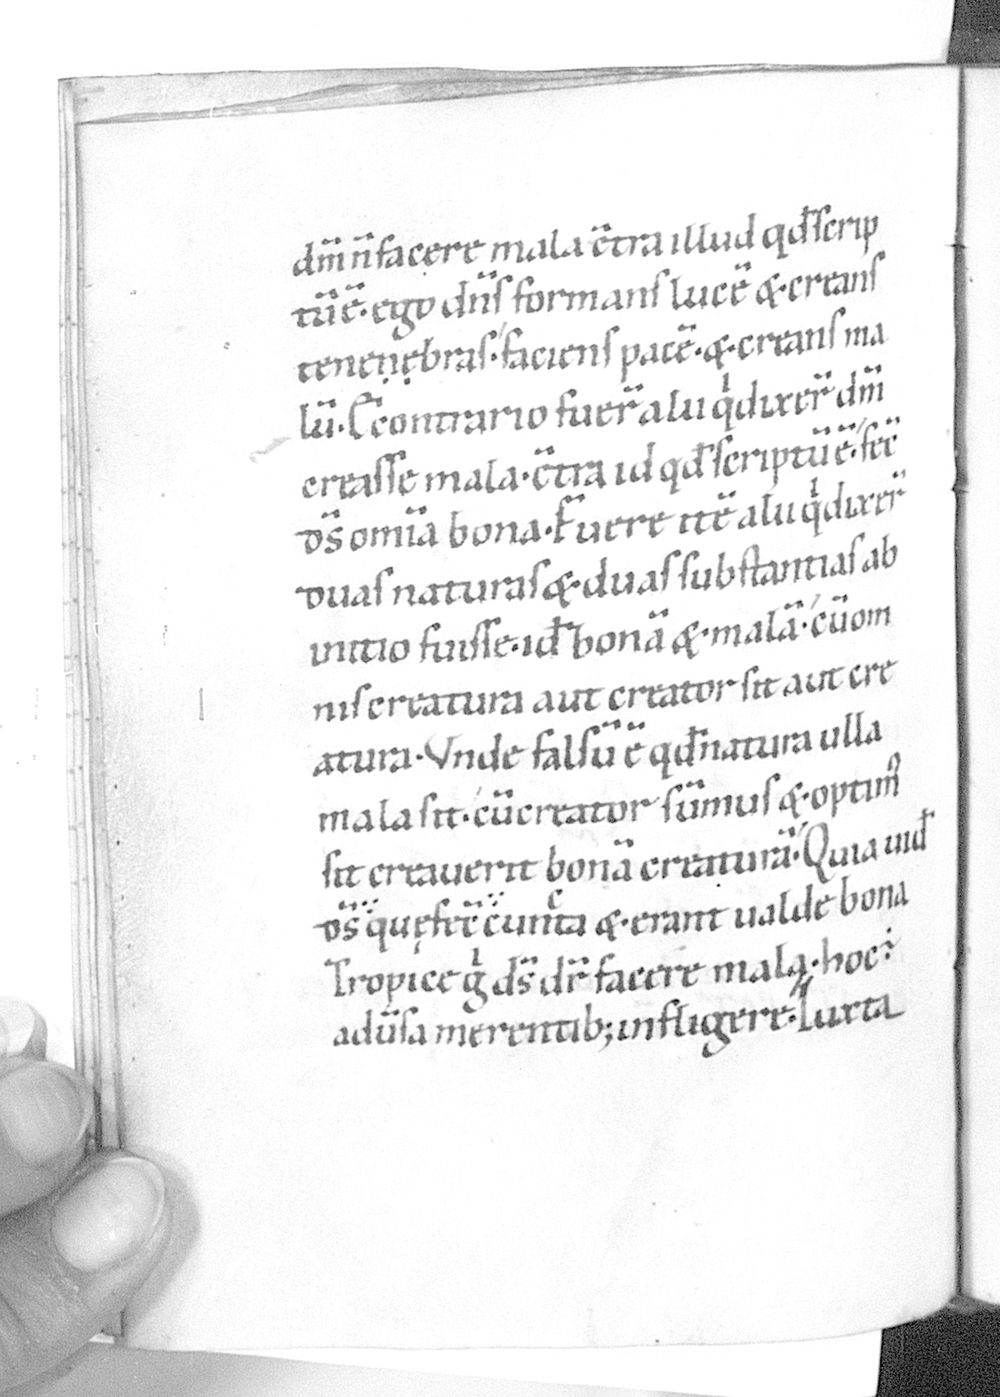 dm̄ n̄ facere mala c̄tra illud qđ scrip
tū ē· ego dn̄s formans lucē &· creans
tenenębras· faciens pacē· &· creans ma
lū· E c̄contrario fuer̄ alii qͥ dixer̄ dm̄
creasse mala· c̄tra id qđ scriptū ē· fec̄
ds̄ om̄ia bona· Fuere itē alii qͥ dixer̄
duas naturas &· duas substantias ab
initio fuisse· id̄ bonā &· malā· cū om
nis creatura aut creator sit aut cre
atura· Vnde falsū ē qđ natura ulla
mala sit· cū creator sūmus &· optimꝰ
sit creauerit bonā creaturā· Quia uid̄
ds̄ quę fec̄ cuncta &· erant ualde bona
Tropice gͥ ds̄ dr̄ facere mala· hoc ·i·
adūsa merentib; infligere· Iuxta